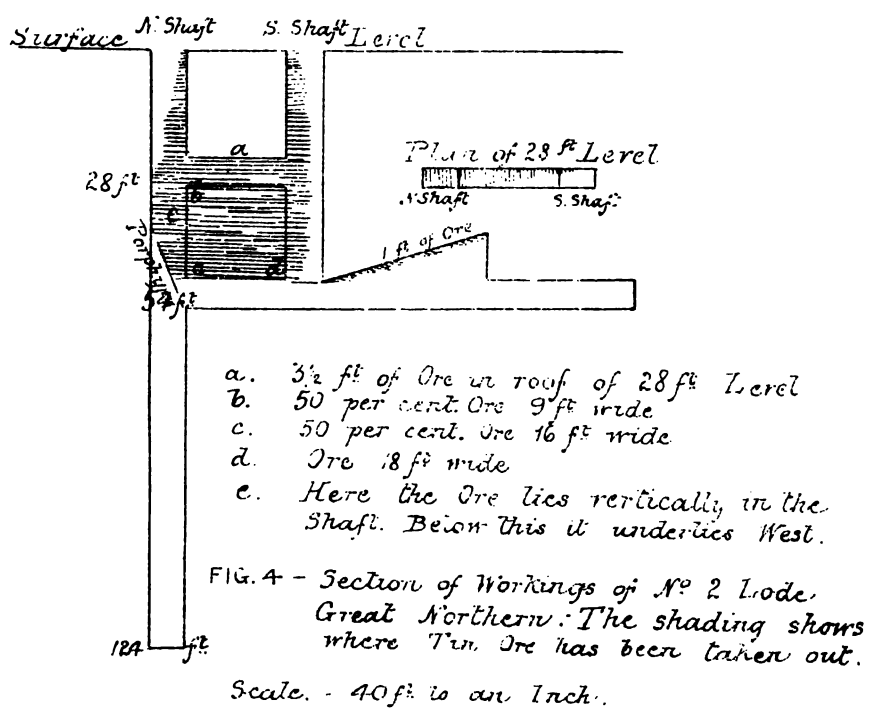 N. Shaft S. Shaft
Surface Level
a
Plan of 28 ft Level
28 ft
b
N Shaft S. Shaft
Porphyry
1 ft of Ore
54 ft
a. 3½ ft of Ore in roof of 28 ft Level
b. 50 per cent. Ore 9 ft wide
c. 50 per cent. Ore 16 ft wide
d. Ore 18 ft wide
e. Here the Ore lies vertically in the
Shaft. Below this it underlies West.
FIG. 4 - Section of Workings of No 2 Lode,
Great Northern: The shading shows
where Tin Ore has been taken out.
124 ft
Scale. - 40 ft to an Inch.